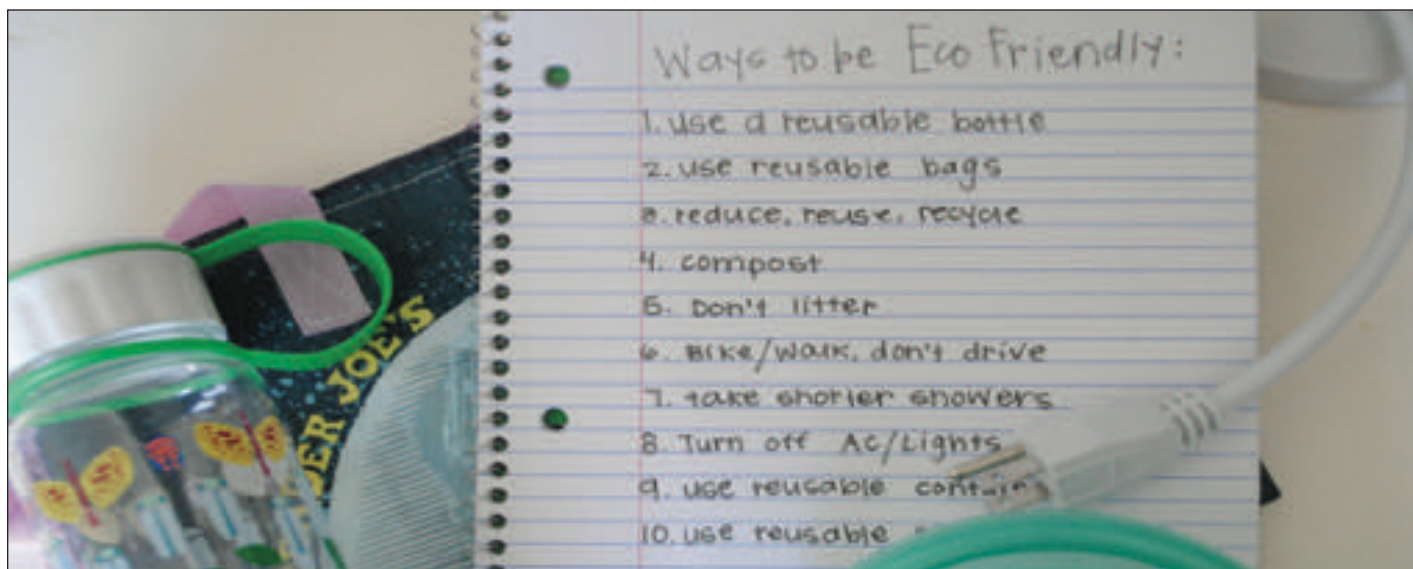 Ways to be Eco Friendly:
1. use a reusable bottle
2. use reusable bags
3. reduce, reuse, recycle
4. compost
5. Don't litter
6. Bike/Walk, don't drive
7. take shorter showers
8. Turn off AC/Lights
9. use reusable
10. use reusable
DER JOE'S